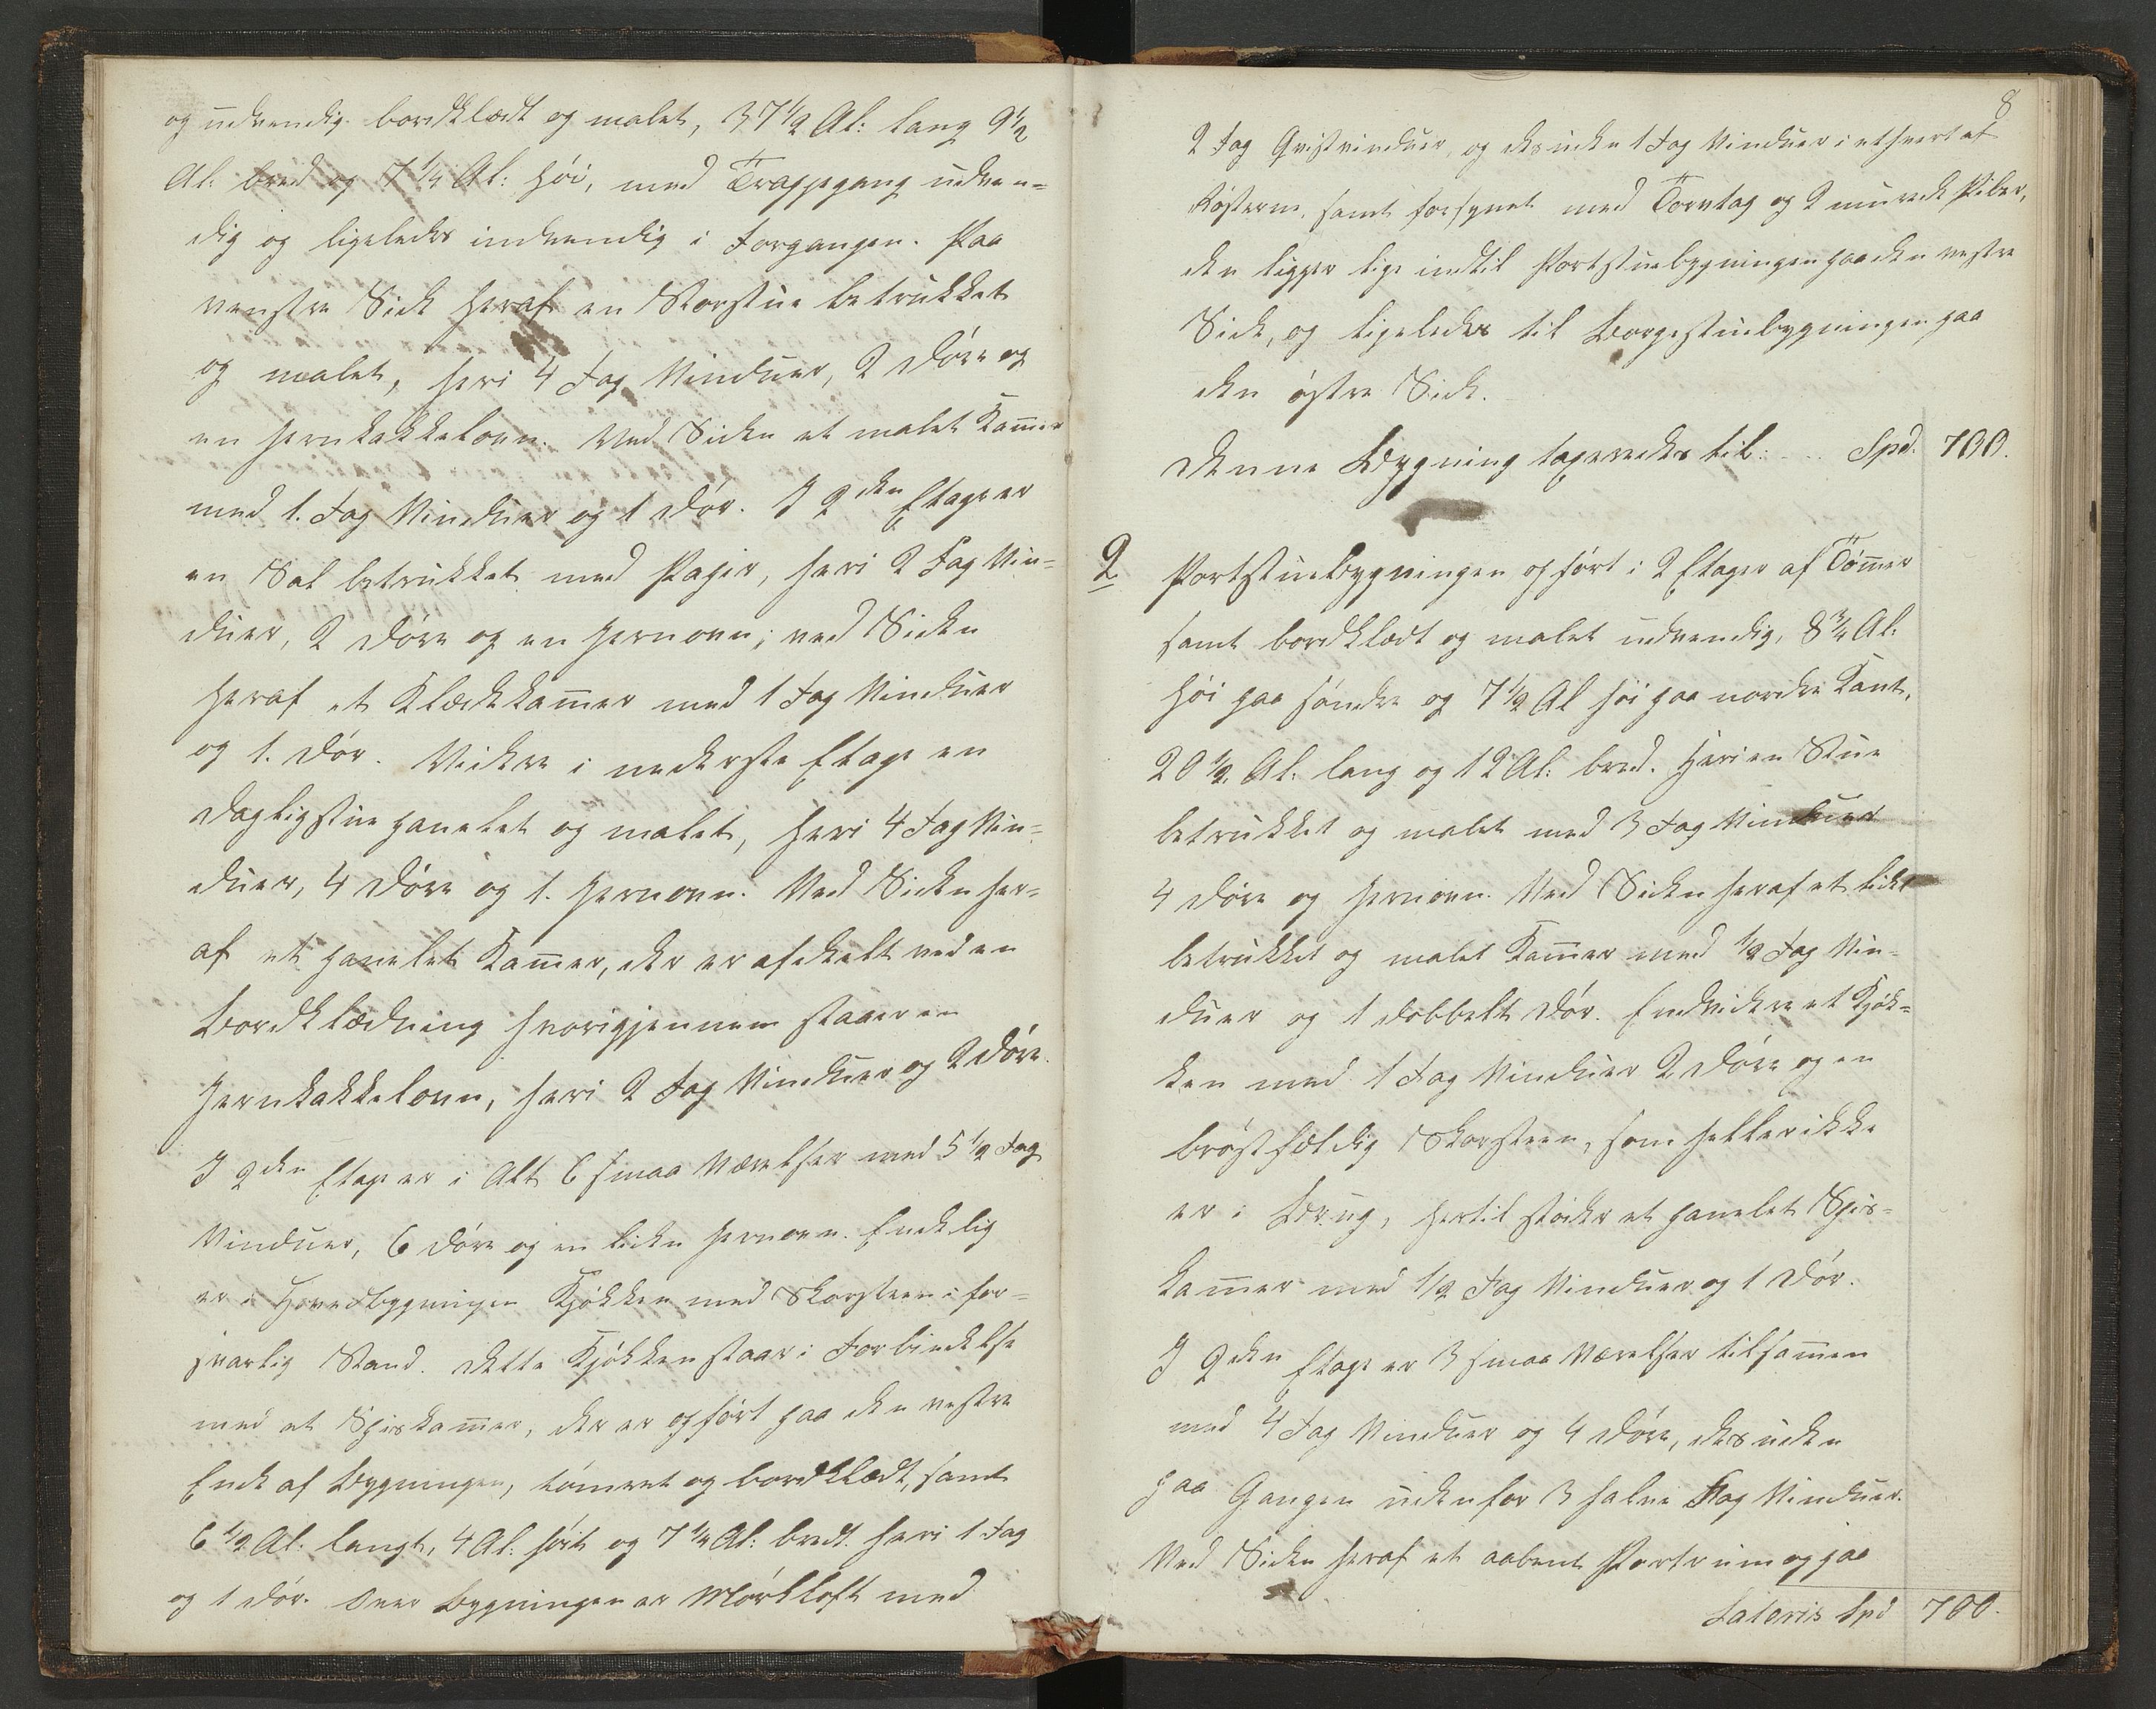 og udvendig bordklædt og malet, 37 1/2 Al: lang 9 1/2
Al: bred og 7 1/4 Al: høi, med Trappegang udven=
dig og ligeledes indvendig i Forgangen. Paa
venstre Side heraf en Storstue betrukket
og malet, heri 4 Fag Vinduer, 2 Døre og
en Jernkakkelovn. Ved Siden et malet Kam̅er
med 1. Fag Vinduer og 1 Dør. I 2den Etage er
en Sal betrukket med Papir, heri 2 Fag Vin=
duer, 2 Døre og en Jernovn; ved Siden
heraf et Klædekam̅er med 1 Fag Vinduer
og 1. Dør. Videre i nederste Etage en
Dagligstue panelet og malet, heri 4 Fag Vin=
duer, 4 Døre og 1. Jernovn. Ved Siden her=
af et panelet Kam̅er, der er afdeelt ved en
Bordklædning hvorigjennem staaer en
Jernkakkelovn, heri 2 Fag Vinduer og 2 Døre.
I 2den Etage er i Alt 6 smaa Værelser med 5 1/2 Fag
Vinduer, 6 Døre og en liden Jernovn. Endelig
er i Hovedbygningen Kjøkken med Skorsteen i for=
svarlig Stand. Dette Kjøkken staar i Forbindelse
med et Spiskam̅er, der er opført paa den vestre
Ende af Bygningen, tømret og bordklædt, samt
6 1/2 Al: langt, 4 Al: høit og 7 1/4 Al: bredt. heri 1 Fag
og 1 Dør. Over Bygningen er Mørkloft med
8
2 Fag Qvistvinduer, og desuden 1 Fag Vinduer i ethvert af
Røsterne, samt forsynet med Torvtag og 2 murede Piber,
den ligger lige indtil Portstuebygningen paa den vestre
Side, og ligeledes til Borgestuebygningen paa
den østre Side.
Denne Bygning taxeredes til: ... Spd. 700.
2 Portstuebygningen opført i 2 Etager af Töm̅er
samt bordklædt og malet udvendig, 8 3/4 Al:
høi paa søndre og 7 1/2 Al høi paa nordre Kant,
20 1/2 Al: lang og 12 Al: bred. Heri en Stue
betrukket og malet med 3 Fag Vinduer
4 Døre og Jernovn. Ved Siden heraf et lidet
betrukket og malet Kam̅er med 1/2 Fag Vin=
duer og 1 dobbelt Dør. Endvidere et Kjøk=
ken med 1 Fag Vinduer 2 Døre og en
brøstfældig Skorsteen, som heller ikke
er i Brug, hertil støder et panelet Spis=
kam̅er med 1/2 Fag Vinduer og 1 Dør.
I 2den Etage er 3 smaa Værelser tilsam̅en
med 4 Fag Vinduer og 4 Døre, desuden
paa Gangen udenfor 3 halve Fag Vinduer.
Ved Siden heraf et aabent Portrum og paa
Lateris Spd 700.